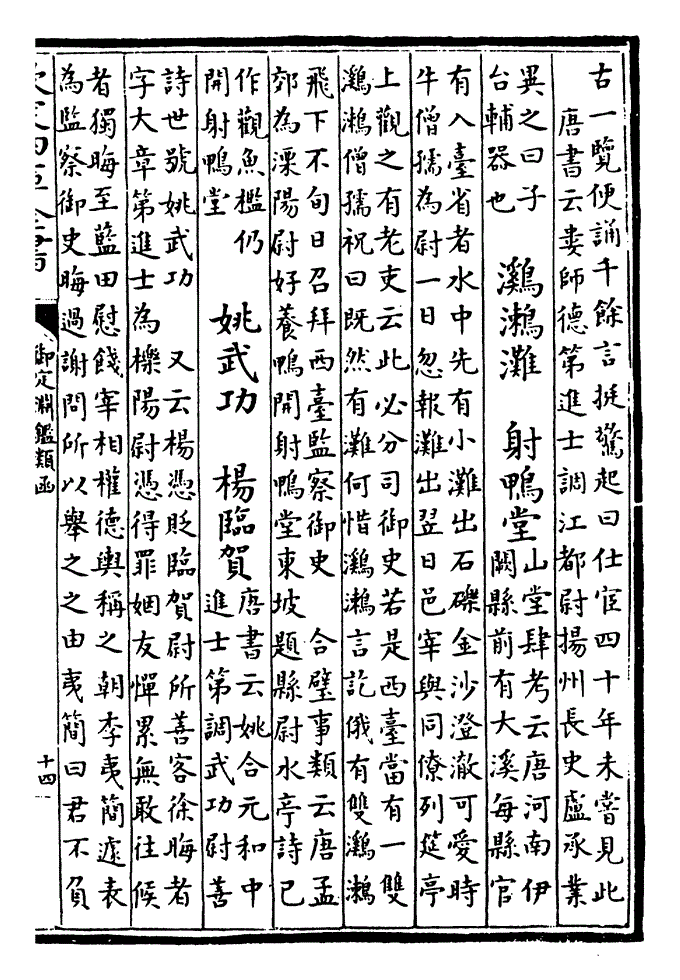 古一覽便誦千餘言挺驚起曰仕宦四十年未嘗見此
唐書云婁師德第進士調江都尉揚州長史盧承業
異之曰子
台輔器也
鸂鶒灘　射鴨堂
山堂肆考云唐河南伊
闕縣前有大溪每縣官
有入臺省者水中先有小灘出石礫金沙澄澈可愛時
牛僧孺為尉一日忽報灘出翌日邑宰與同僚列筵亭
上觀之有老吏云此必分司御史若是西臺當有一雙
鸂鶒僧孺祝曰既然有灘何惜鸂鶒言訖俄有雙鸂鶒
飛下不旬日召拜西臺監察御史　合璧事類云唐孟
郊為溧陽尉好養鴨開射鴨堂東坡題縣尉水亭詩已
作觀魚檻仍
開射鴨堂
姚武功　楊臨賀
唐書云姚合元和中
進士第調武功尉善
詩世號姚武功　又云楊憑貶臨賀尉所善客徐晦者
字大章第進士為櫟陽尉憑得罪姻友憚累無敢往候
者獨晦至藍田慰餞宰相權德輿稱之朝李夷簡遽表
為監察御史晦過謝問所以舉之之由夷簡曰君不負
欽定四庫全書
御定淵鑑類函
十四